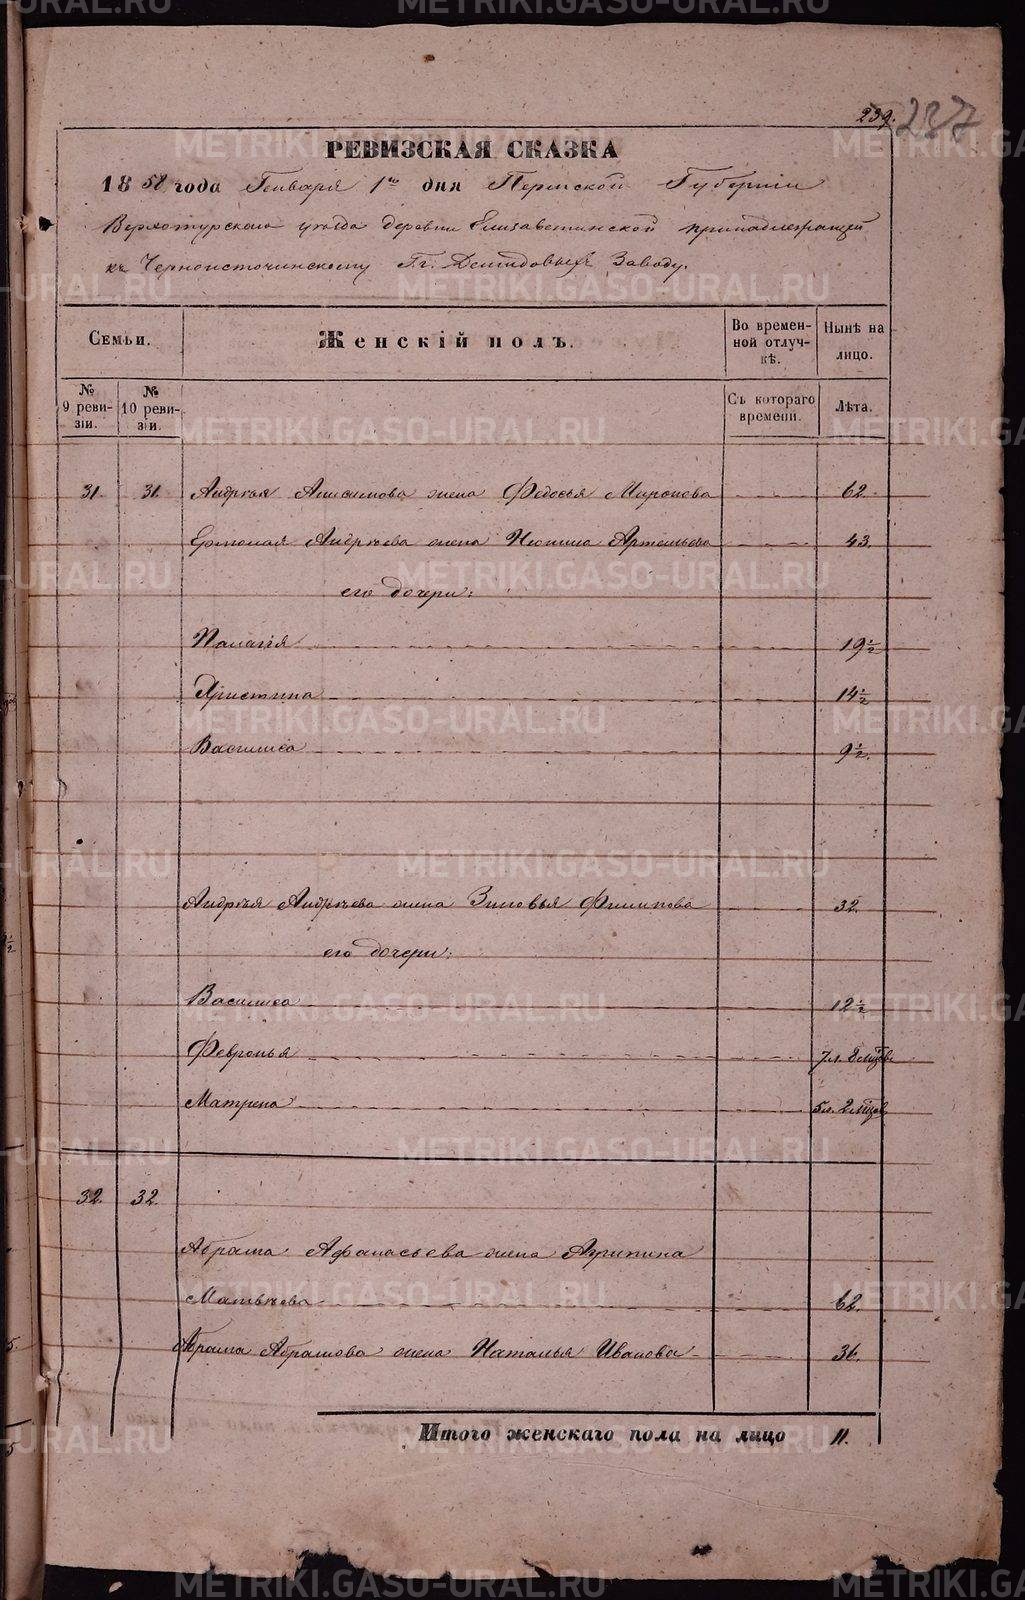 239. 237
РЕВИЗСКАЯ СКАЗКА
1858 года Генваря 1го дня Пермской Губерніи
Верхотурскаго уезда деревни Елизаветинской принадлежащей
къ Черноисточинскому Гг. Демидовыхъ Заводу.
Семьи.
Женскій полъ.
Во времен-
ной отлуч-
кѣ.
Нынѣ на
лицо.
№
9 реви-
зіи.
№
10 реви-
зіи.
Съ котораго
времени.
Лѣта.
31. 31. Андрея Анисимова жена Федосья Миронова 62.
Ермолая Андрѣева жена Нионила Артемьева 43.
его дочери:
Палагія 19 1/2
Христина 14 1/2
Василиса 9 1/2.
Андрея Андрѣева жена Зиновья Филипова 32.
его дочери:
Василиса 12 1/2
Февронья 7 л. 8 мѣсяц.
Матрена 5 л. 2 мѣсяц.
32. 32.
Абрама Афанасьева жена Агрипина
Матвѣева 62.
Абрама Абрамова жена Наталья Иванова 36.
Итого женскаго пола на лицо 11.
METRIKI.GASO-URAL.RU